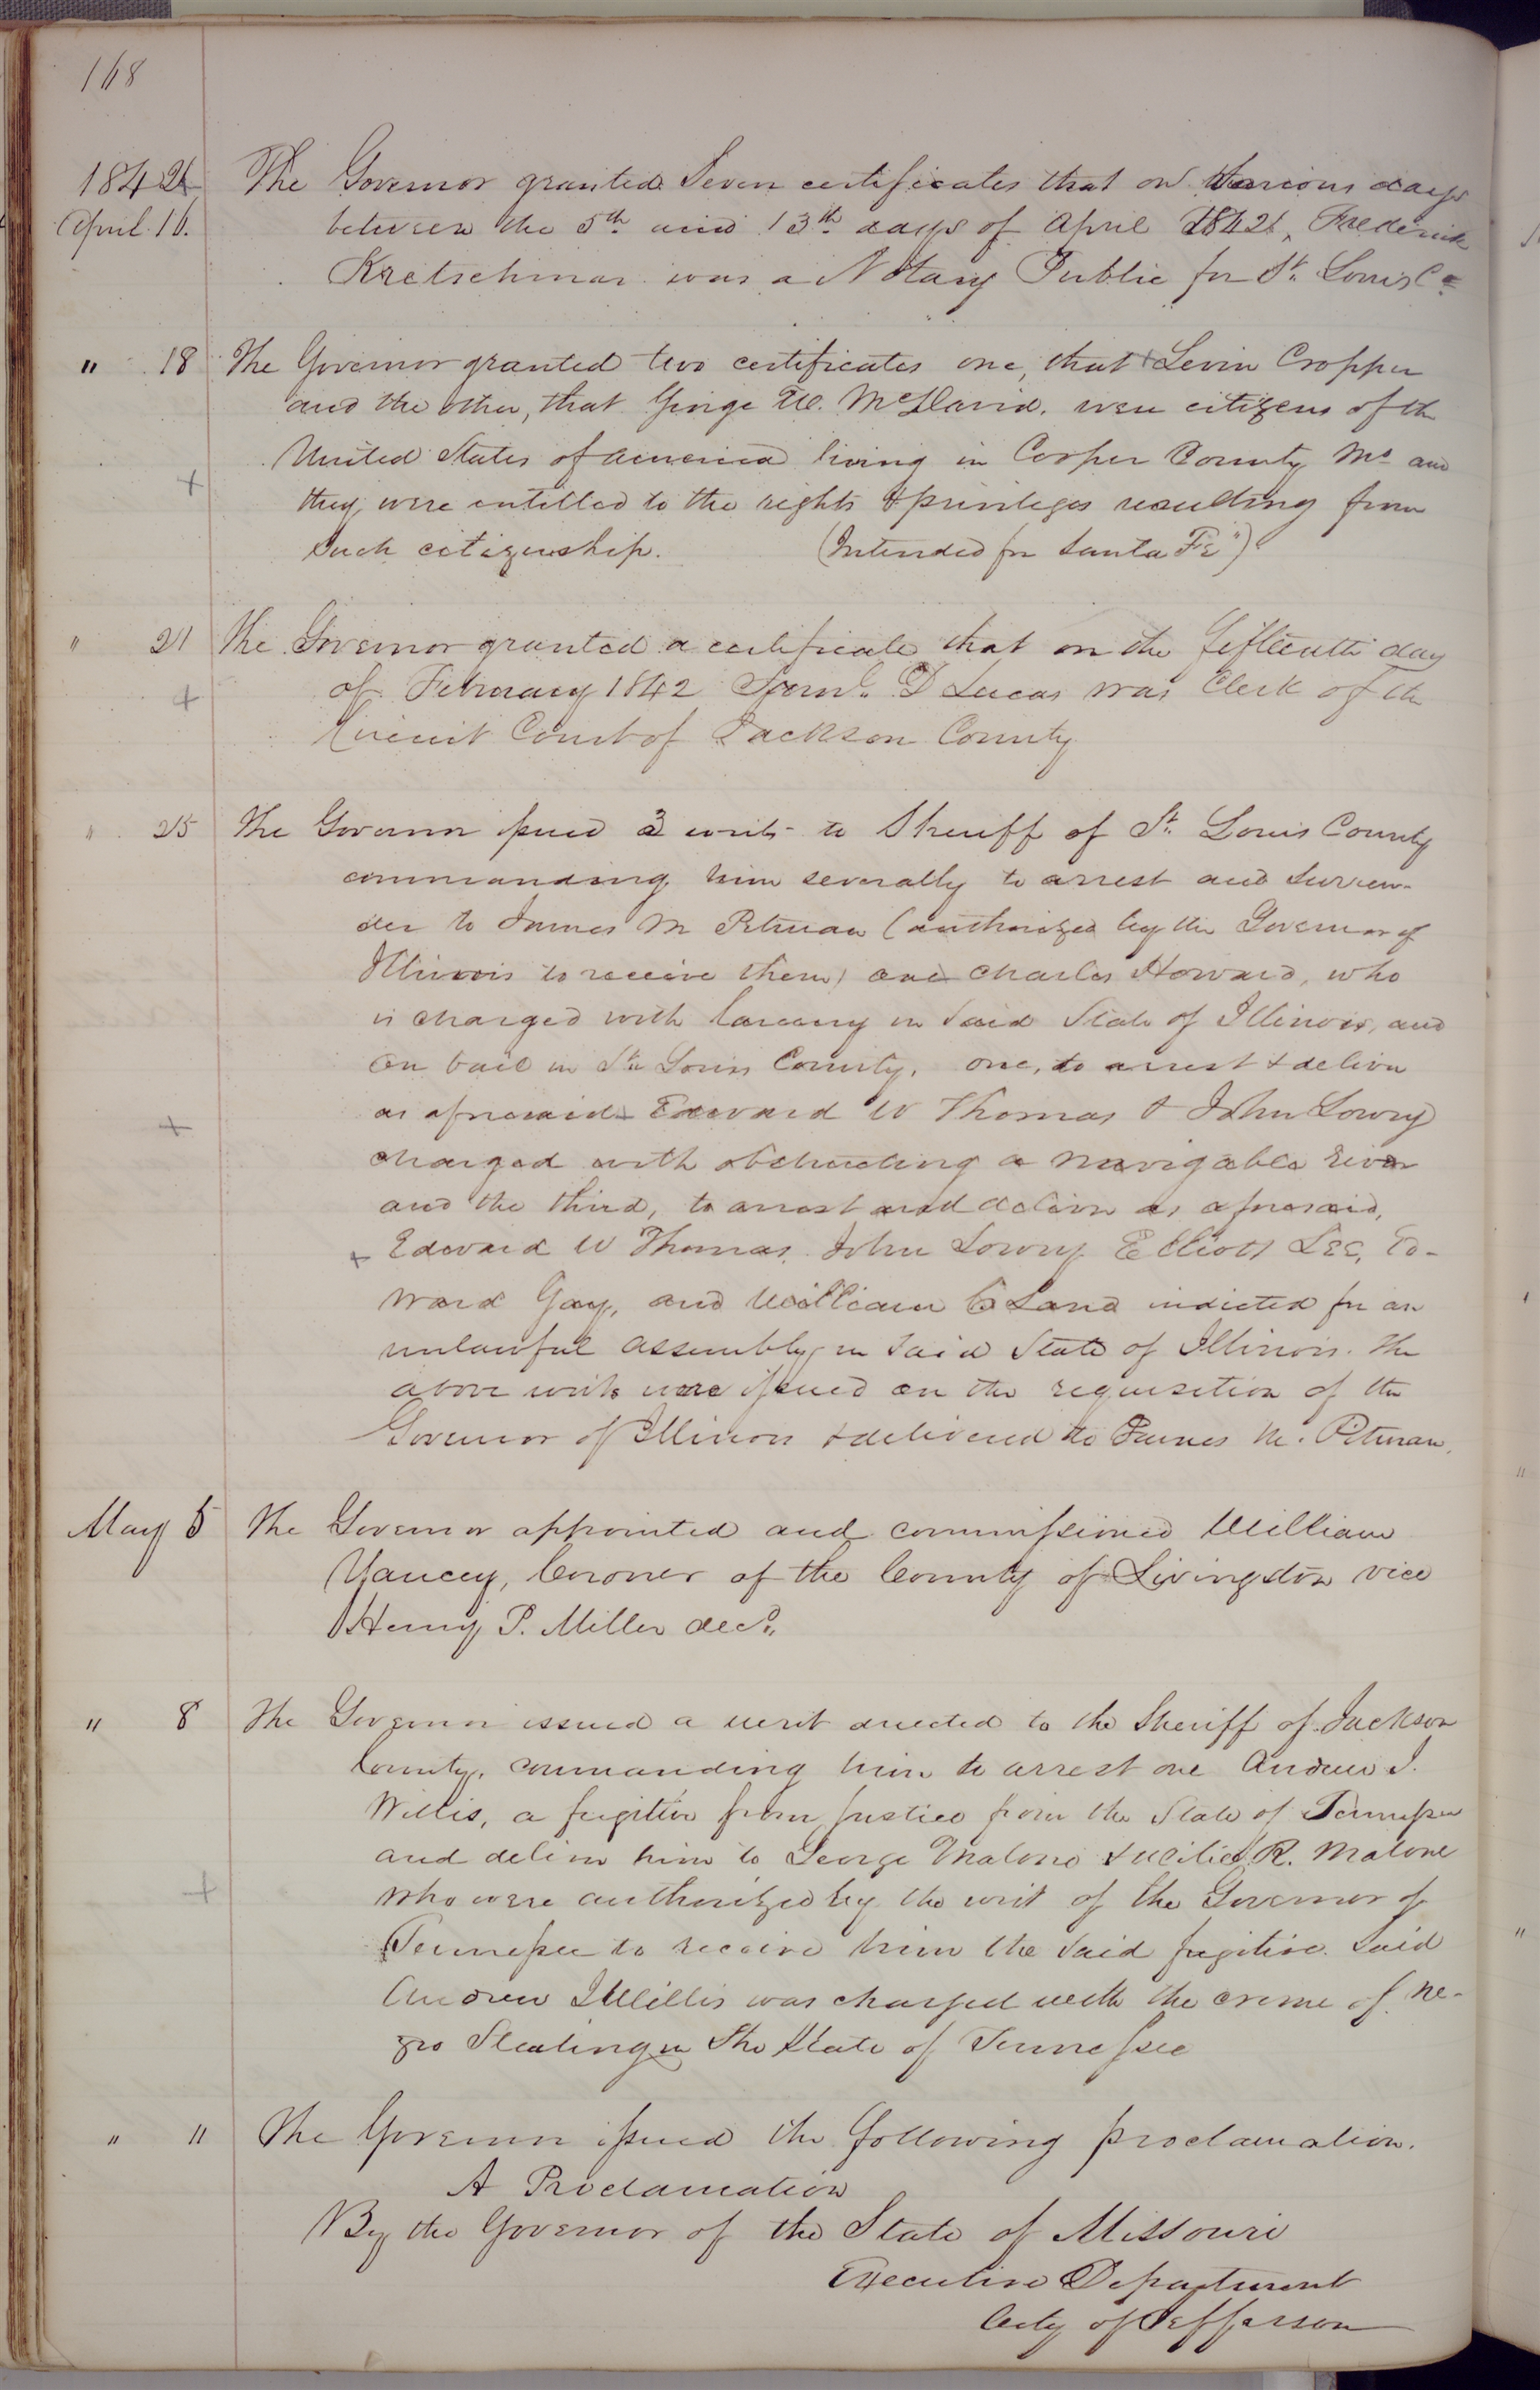 168
1842 The Governor granted Seven certificates that on various days
April 16. between the 5th and 13th days of April 1842, Frederick
Kretschmar was a Notary Public for St. Louis Co
" 18 The Governor granted two certificates one, that Levin Cropper
and the other, that George W. McDavid. were citizens of the
United States of america living in Cooper County Mo and
they were entitled to the rights & privileges resulting from
such citizenship. (Intended for Santa Fe")
" 21 The Governor granted a certificate that on the fifteenth day
of February 1842 Saml. D Lucas was Clerk of the
Circuit Court of Jackson County
" 25 The Governor issued 3 writs to Sheriff of St. Louis County
commanding him severally to arrest and surren-
der to James M Pitman (authorized by the Governor of
Illinois to receive them) one Charles Howard, who
is charged with larceny in said State of Illinois, and
on bail in St. Louis County, one, to arrest & deliver
as aforesaid Edward W Thomas & John Lowry
charged with obstructing a navigable river
and the third, to arrest and deliver as aforesaid,
Edward W Thomas, John Lowry Elliott Lee, Ed-
ward Gay, and William C Land indicted for an
unlawful assembly in said State of Illinois. The
above writs were issued on the requisition of the
Governor of Illinois & delivered to James M. Pitman.
May 5 The Governor appointed and commissioned William
Yancey, Coroner of the County of Livingston vice
Henry P. Miller decd.
" 8 The Governor issued a writ directed to the Sheriff of Jackson
County, commanding him to arrest one Andrew J.
Willis, a fugitive from justice from the State of Tennessee
and deliver him to George Malone & R. Malone
who were authorized by the writ of the Governor of
Tennessee to receive him the said fugitive. Said
Andrew J Willis was charged with the crime of ne-
gro Stealing in the State of Tennessee
" 11 The Governor issued the following proclamation.
A Proclamation
By the Governor of the State of Missouri
Executive Department
City of Jefferson